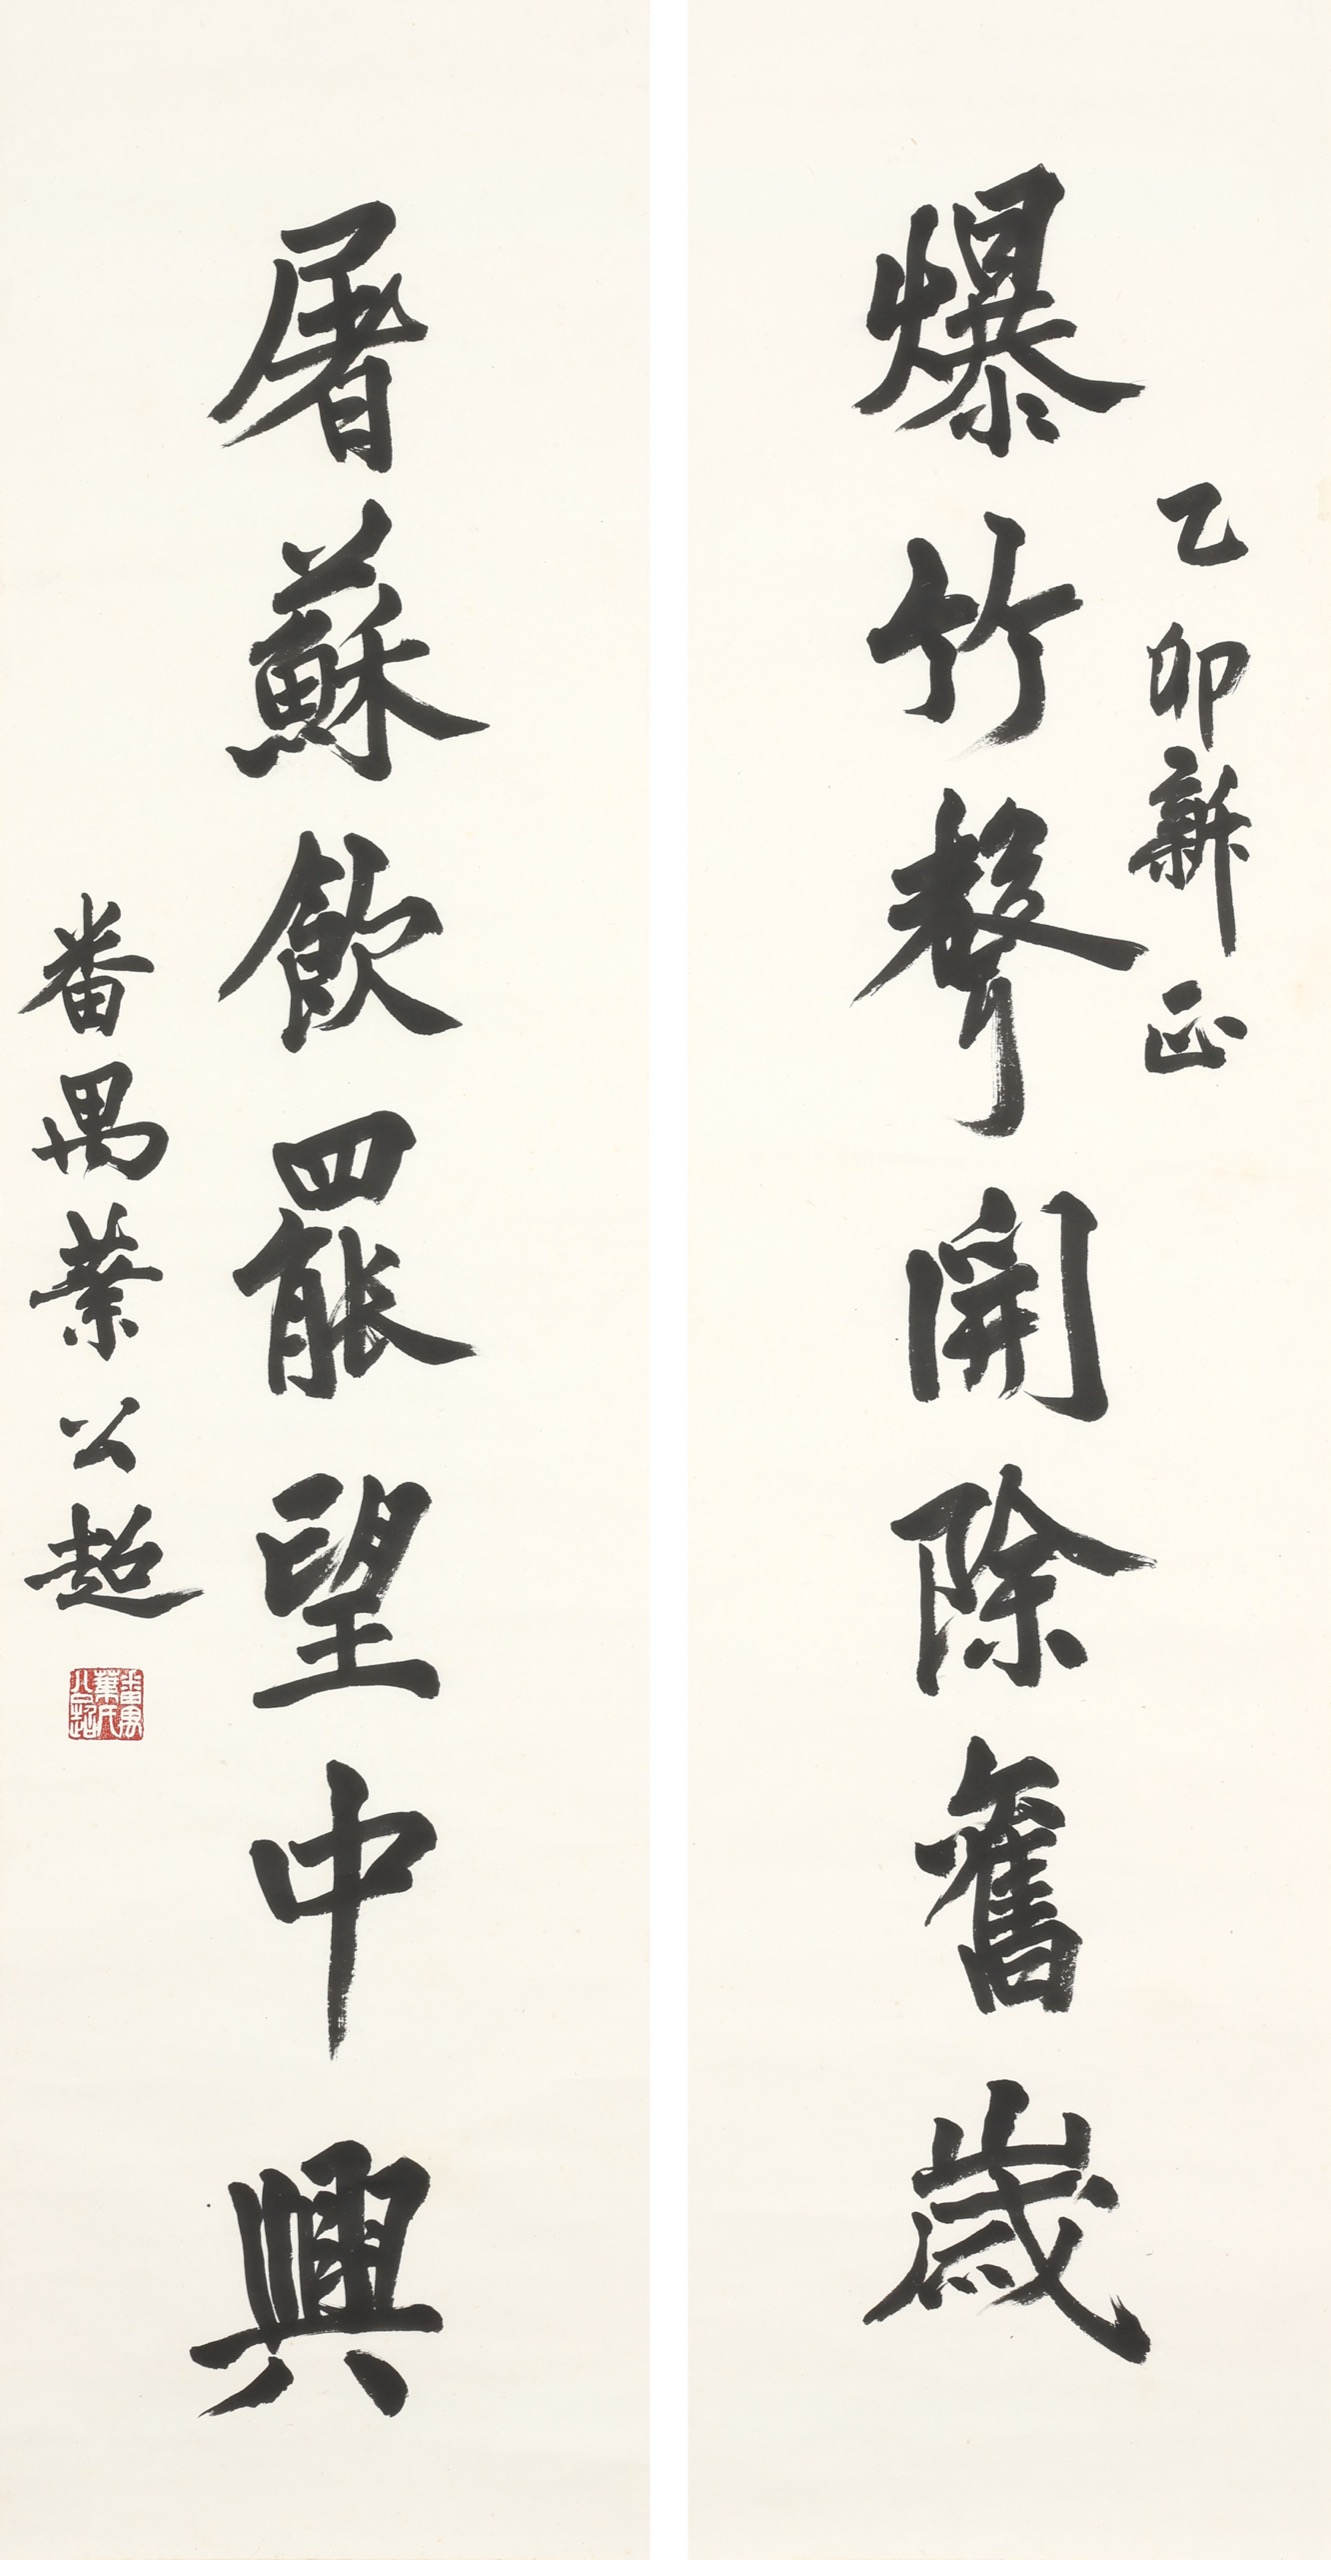 爆竹聲開除舊歲
乙卯新正
屠蘇飲罷望中興
番禺葉公超
番禺葉氏公超